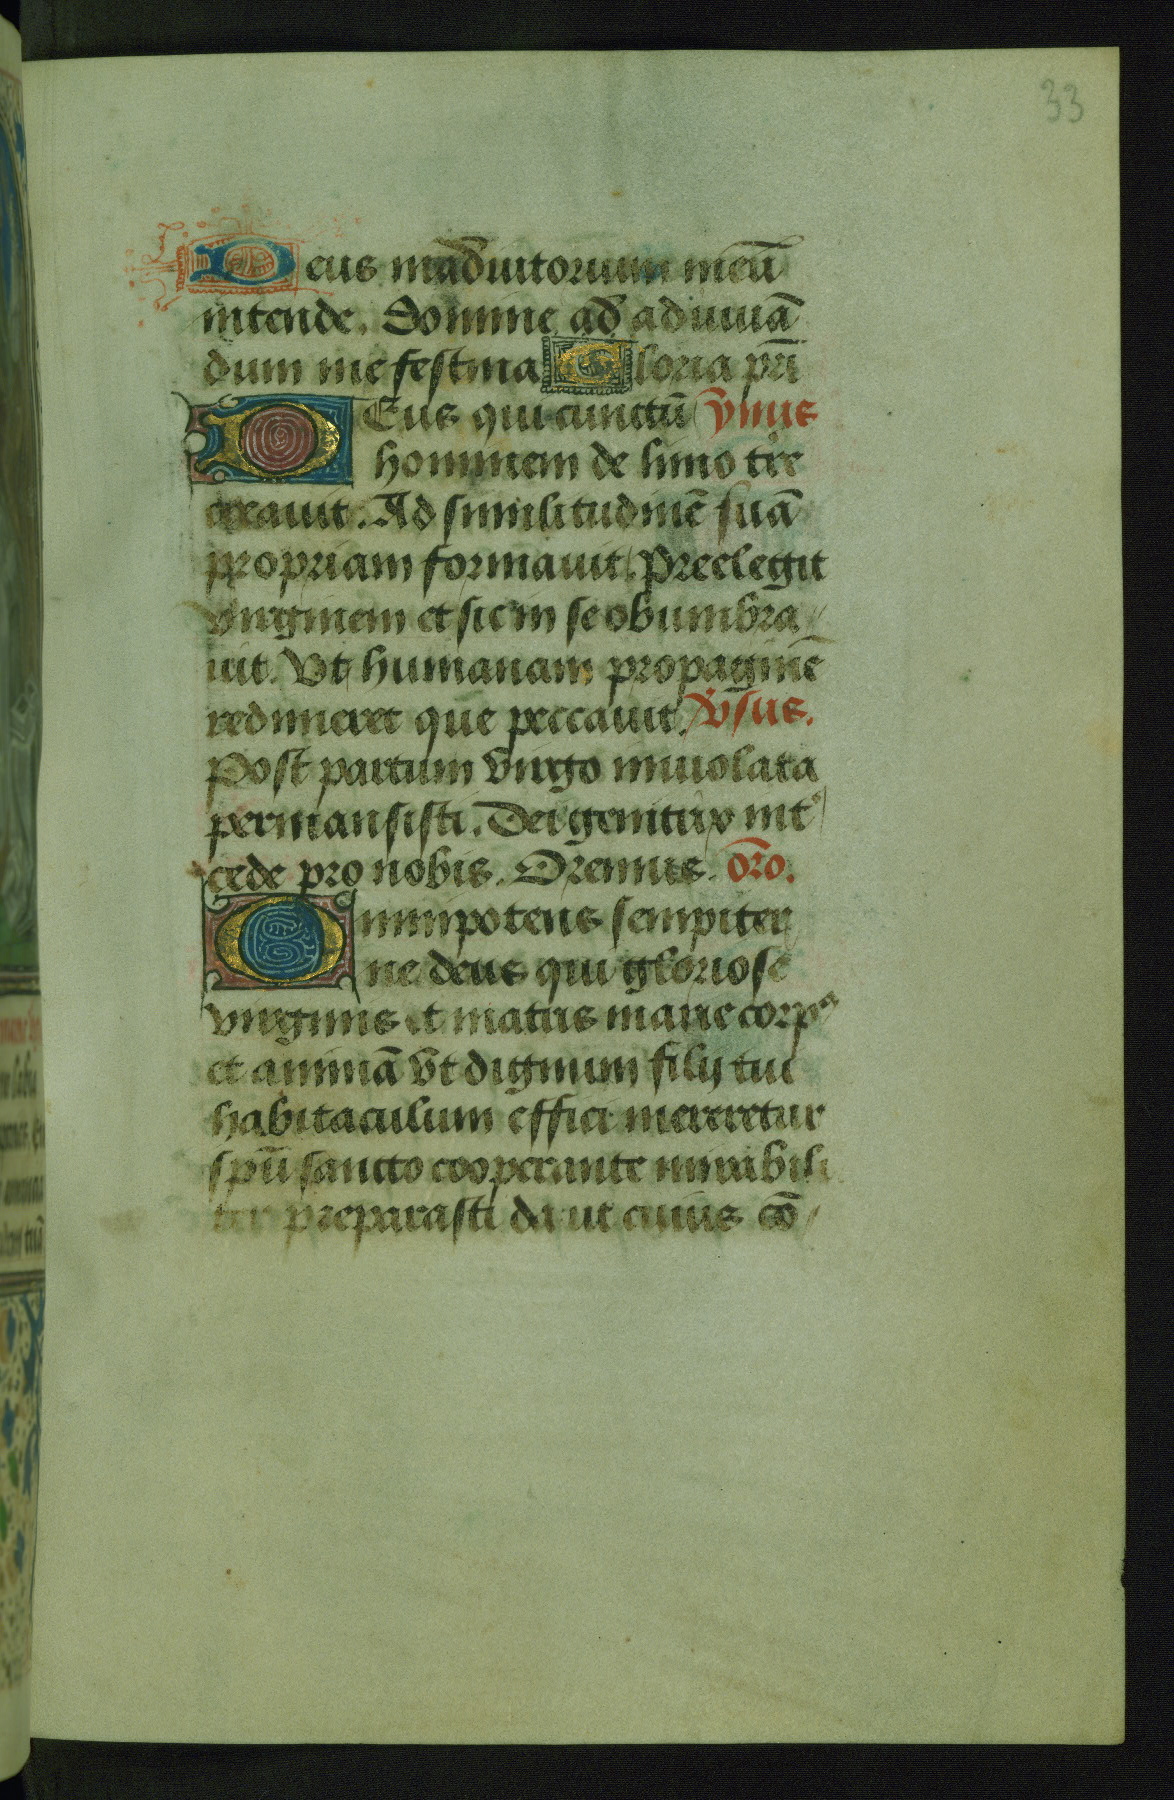 33
Deus in adiutorium meū
intende. Domine ad adiuuā
dum me festina Gloria pri
DEus qui cunctū ymus
hominem de limo tre
creauit. Ad similitudinē suā
propriam formauit. Preelegit
virginem et sic in se obumbra
uit. Vt humanam propaginē
redimeret que peccauit. Vsus.
Post partum virgo inuiolata
permansisti. Dei genitrix int
cede pro nobis. Oremus. oro.
Omnipotens sempiter
ne deus qui gloriose
virginis et matris marie corp9
et animā vt dignum filij tui
habitaculum effici mereretur
spū sancto cooperante mirabili
ter preparasti da ut cuius cō